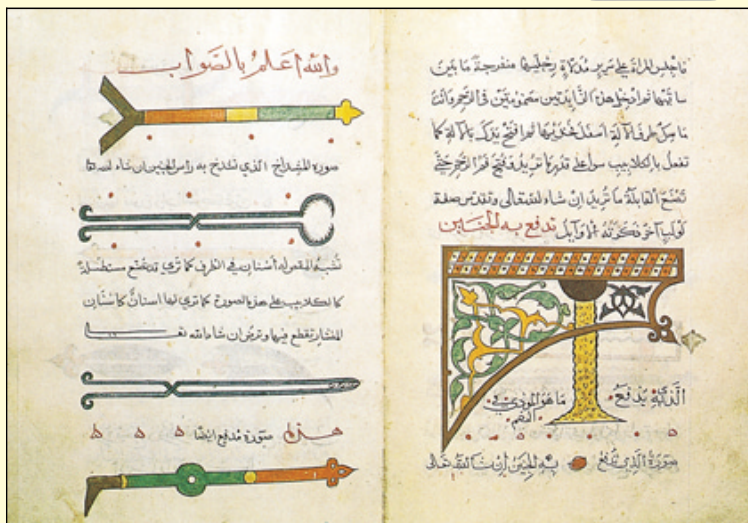 فاجلس المرأة على سرير مدلاة رجليها منفرجة ما بين
ساقيها ثم ادخل هذا الزايدتين مضمومتين في الرحم وانت
ماسك طرف الآلة اسفل فخذيها ثم افتح يدك بالآلة كما
تفعل بالكلاليب سواء على قدر ما تريد وفتح فم الرحم حتى
تصنع القابلة ما تريد ان شاء الله تعالى
ذكرته الاوايل تدفع به الجنين
الذي يدفع
صورة الذي تدفع به الجنين ان شا الله تعالى
والله اعلم بالصواب
صورة المشداخ الذي تشدخ به رأس الجنين ان شاء الله
اسنان في الطرف كما ترى قد تصنع مستطيلة
كالكلاليب على هذه الصورة كما ترى لها اسنان كاسنان
المنشار تقطع فيها وترض ان شاء الله تعالى
هذه صورة مدفع ايضا